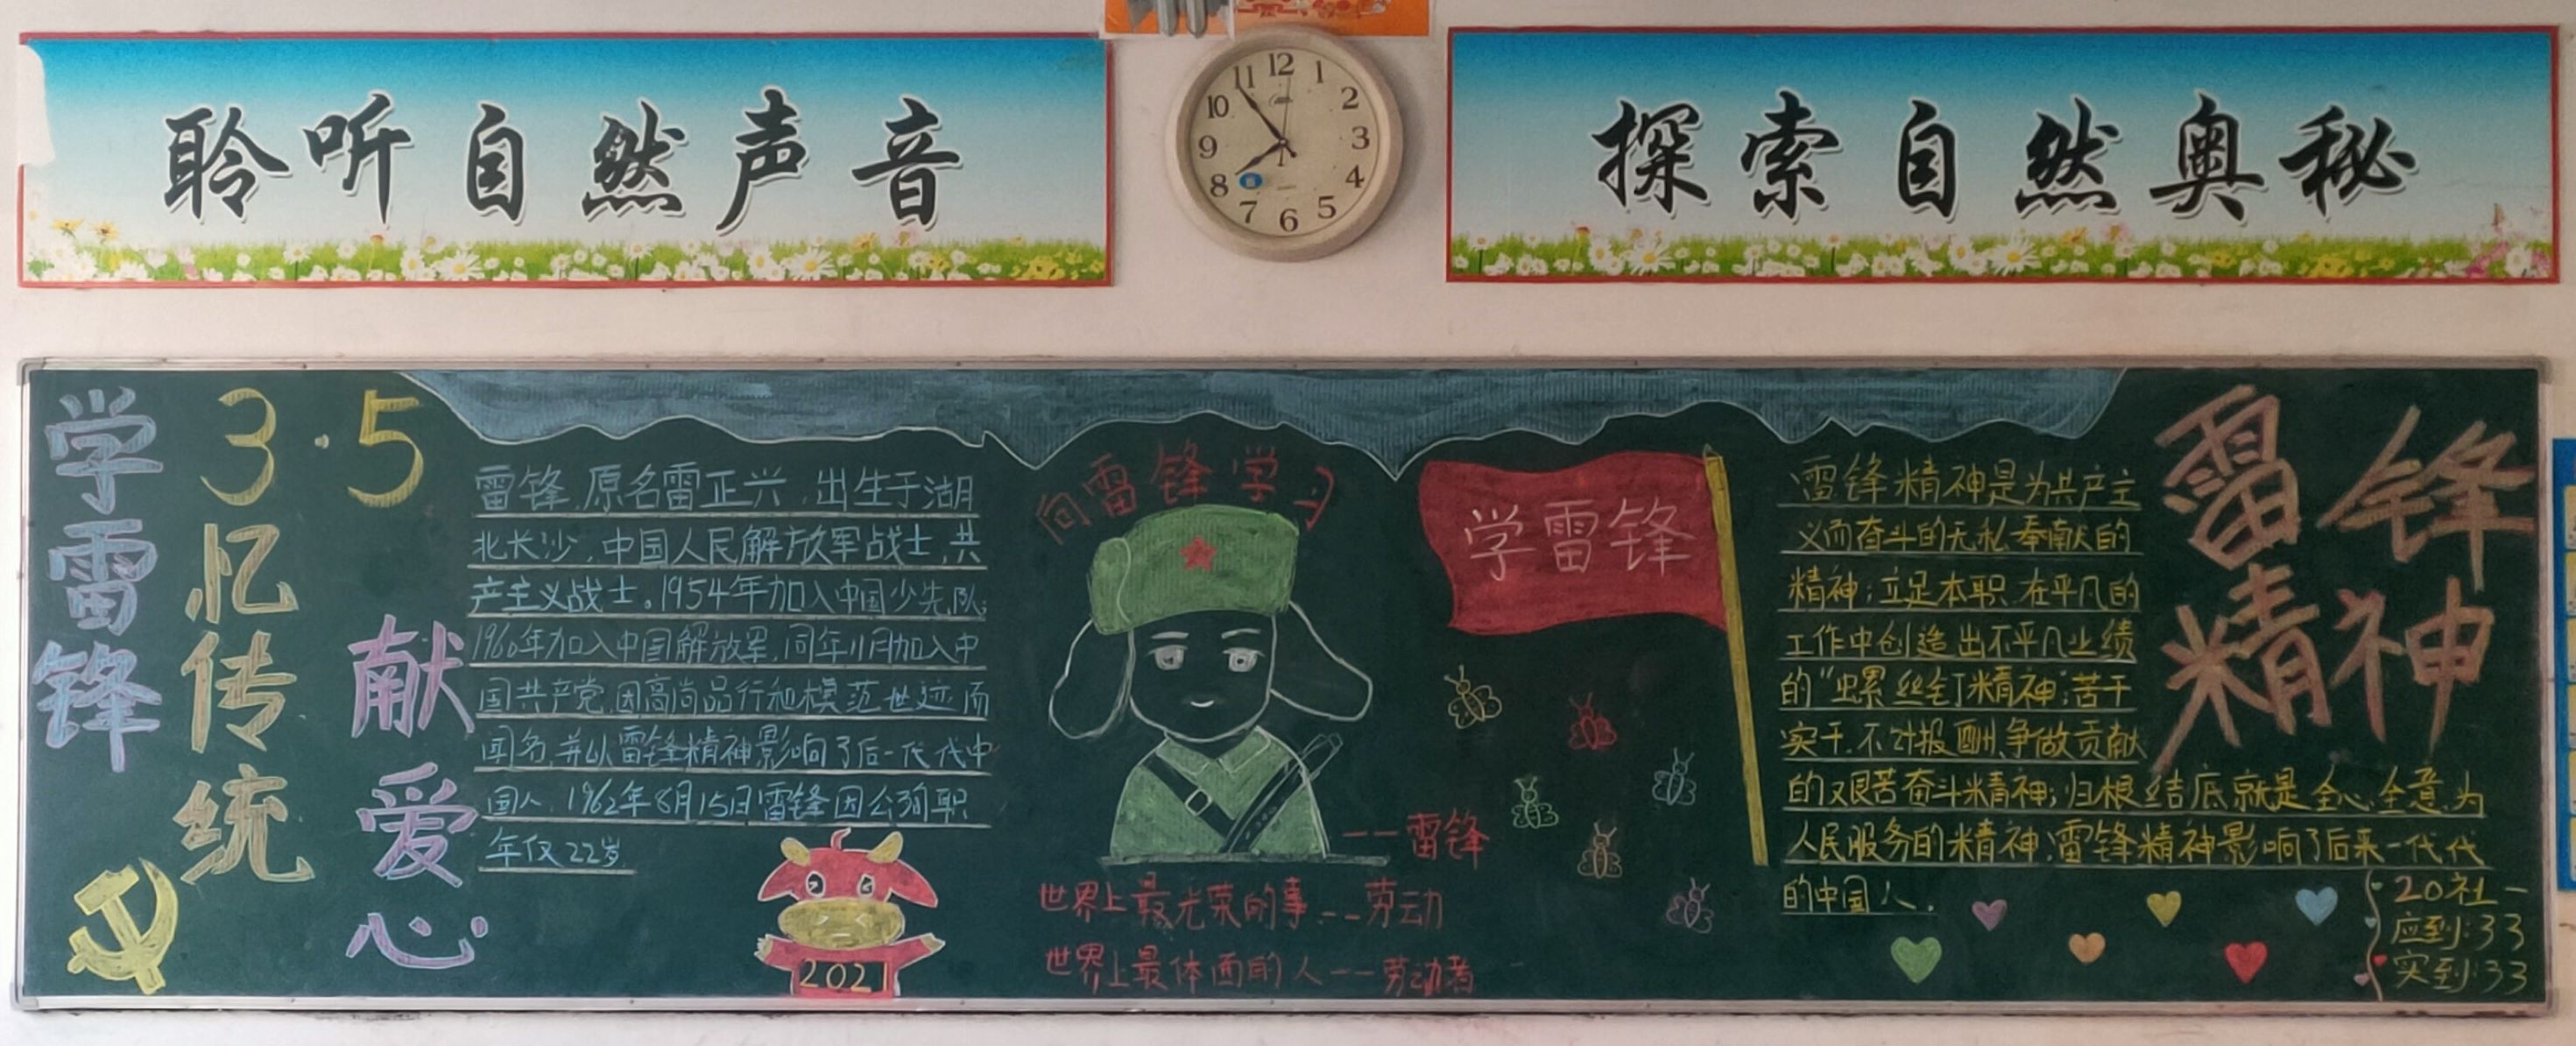 聆听自然声音
12
1
2
3
4
5
6
7
8
9
10
11
探索自然奥秘
学雷锋
3·5
忆传统
献爱心
雷锋,原名雷正兴,出生于湖
北长沙,中国人民解放军战士,共
产主义战士。1954年加入中国少先队;
1960年加入中国解放军,同年11月加入中
国共产党,因高尚品行和模范世迹而
闻名,并以雷锋精神影响了后一代代中
国人.1962年8月15日雷锋因公殉职
年仅22岁
2021
向雷锋学习
--雷锋
世界上最光荣的事--劳动
世界上最体面的人--劳动者
学雷锋
雷锋精神是为共产主
义而奋斗的无私奉献的
精神;立足本职,在平凡的
工作中创造出不平凡业绩
的"螺丝钉精神";苦干
实干,不计报酬、争做贡献
的艰苦奋斗精神;归根结底就是全心全意为
人民服务的精神,雷锋精神影响了后来一代代
的中国人.
雷锋
精神
20社一
应到:33
实到:33